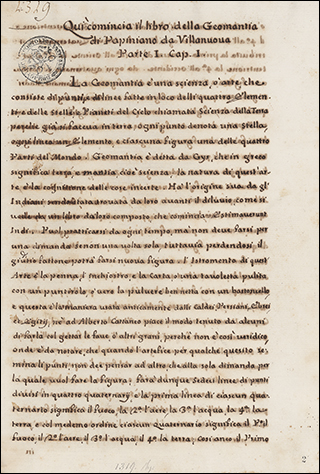 4329
Qui comincia il libro della Geomantia
di Papiniano da Villanuova
Parte I. Cap. I
La Geomantia è una scienza, o arte, che
consiste di punti, e linee fatte in loco delli quattro Elemen-
ti, e delle stelle, e Pianeti del Cielo chiamata Scienza della Terra
perche già si faceva in terra, ogni punto denota una stella,
ogni linea un Elemento, e ciascuna figura una delle quattro
Parti del Mondo. Geomantia è detta da che in greco
significa terra, e mantia, cioè scienza. la natura di quest'ar-
te è la delle cose incerte. Hà l'origine sua da gl'
Indiani vendita trovata da loro avanti il diluvio, come si
vede da un libro da loro composto che comincia
Indi. Puol pratticarsi da ogni tempo, ma non deve farsi per
una dimanda se non una volta sola, tuttavia perdendosi il
fattone potrà farsi nuova figura. L'Istromento di quest'
Arte è la penna, l'inchiostro, e la Carta, o una tavoletta pulita
con un puntirolo, o vero la pulvere ben trita con un bastoncello
e questa è la maniera usata anticamente dalli Caldei, Persiani, Ebrei
et Egitij, nè ad Alberto piace il modo tenuto da alcuni
di farla col gettar le fave, o altri grani, perchè non è così veridico,
onde è da notare che quando l'artefice per qualche quesito
mina li punti, non dee pensar ad altro che alla sola dimanda per
la quale vuol fare la figura; farà dunque sedeci linee di punti
divisi in quattro quaternarij, e la prima linea di ciascun qua-
ternario significa il fuoco, la 2.ª l'aere, la 3.ª l'acqua, la 4.ª la ter-
ra, e col medemo ordine ciascun quaternario significa il P.º il
fuoco, il 2.º l'aere, il 3.º l'acqua, il 4.º la terra, così anco il Primo